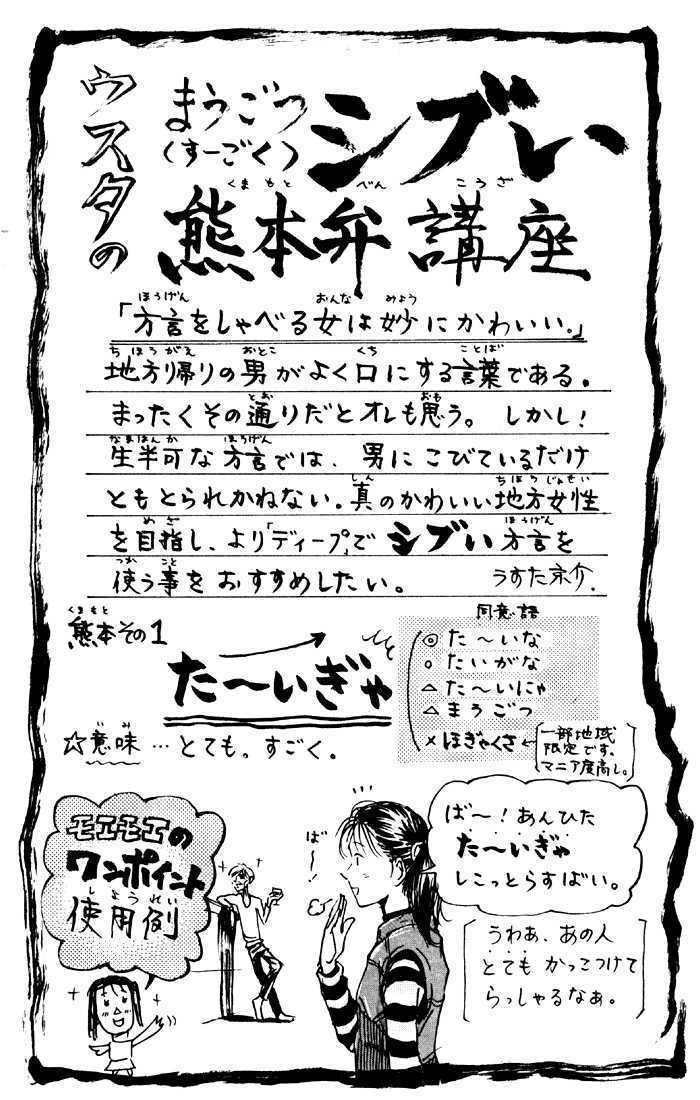 ウスタの
まうごつ
(すーごく)
シブい
熊本弁講座
「方言をしゃべる女は妙にかわいい。」
地方帰りの男がよく口にする言葉である。
まったくその通りだとオレも思う。しかし!
生半可な方言では、男にこびているだけ
ともとられかねない。真のかわいい地方女性
を目指し、より「ディープ」でシブい方言を
使う事をおすすめしたい。
うすた京介.
熊本その1
た〜いぎゃ
☆意味…とても。すごく。
同意語
◎た〜いな
○たいがな
△た〜いにゃ
△まうごつ
×ほぎゃくさ
一部地域
限定です。
マニア度高し。
モエモエの
ワンポイント
使用例
ば〜!
ば〜!あんひた
た〜いぎゃ
しこっとらすばい。
うわあ、あの人
とてもかっこつけて
らっしゃるなぁ。